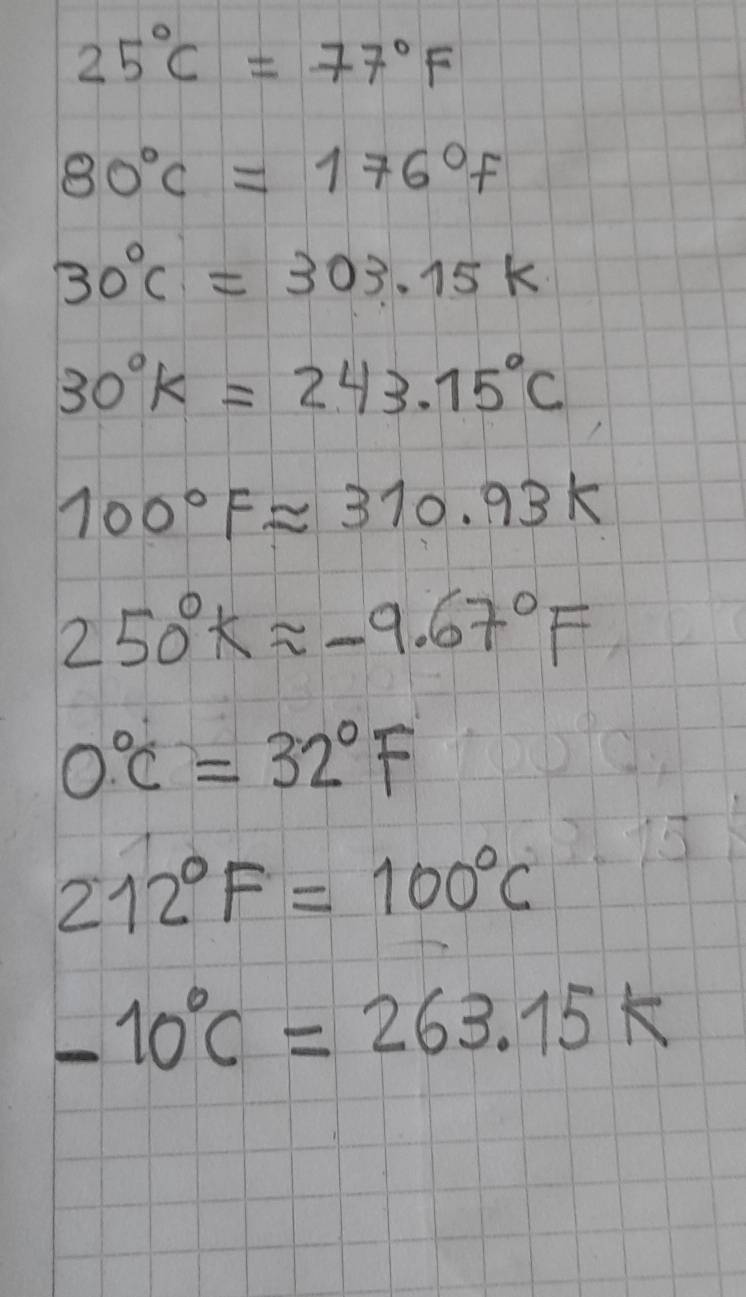 25°C = 77°F
80°C = 176°F
30°C = 303.15 K
30°K = 243.15°C
100°F ≈ 310.93 K
250°K ≈ -9.67°F
0°C = 32°F
212°F = 100°C
-10°C = 263.15 K